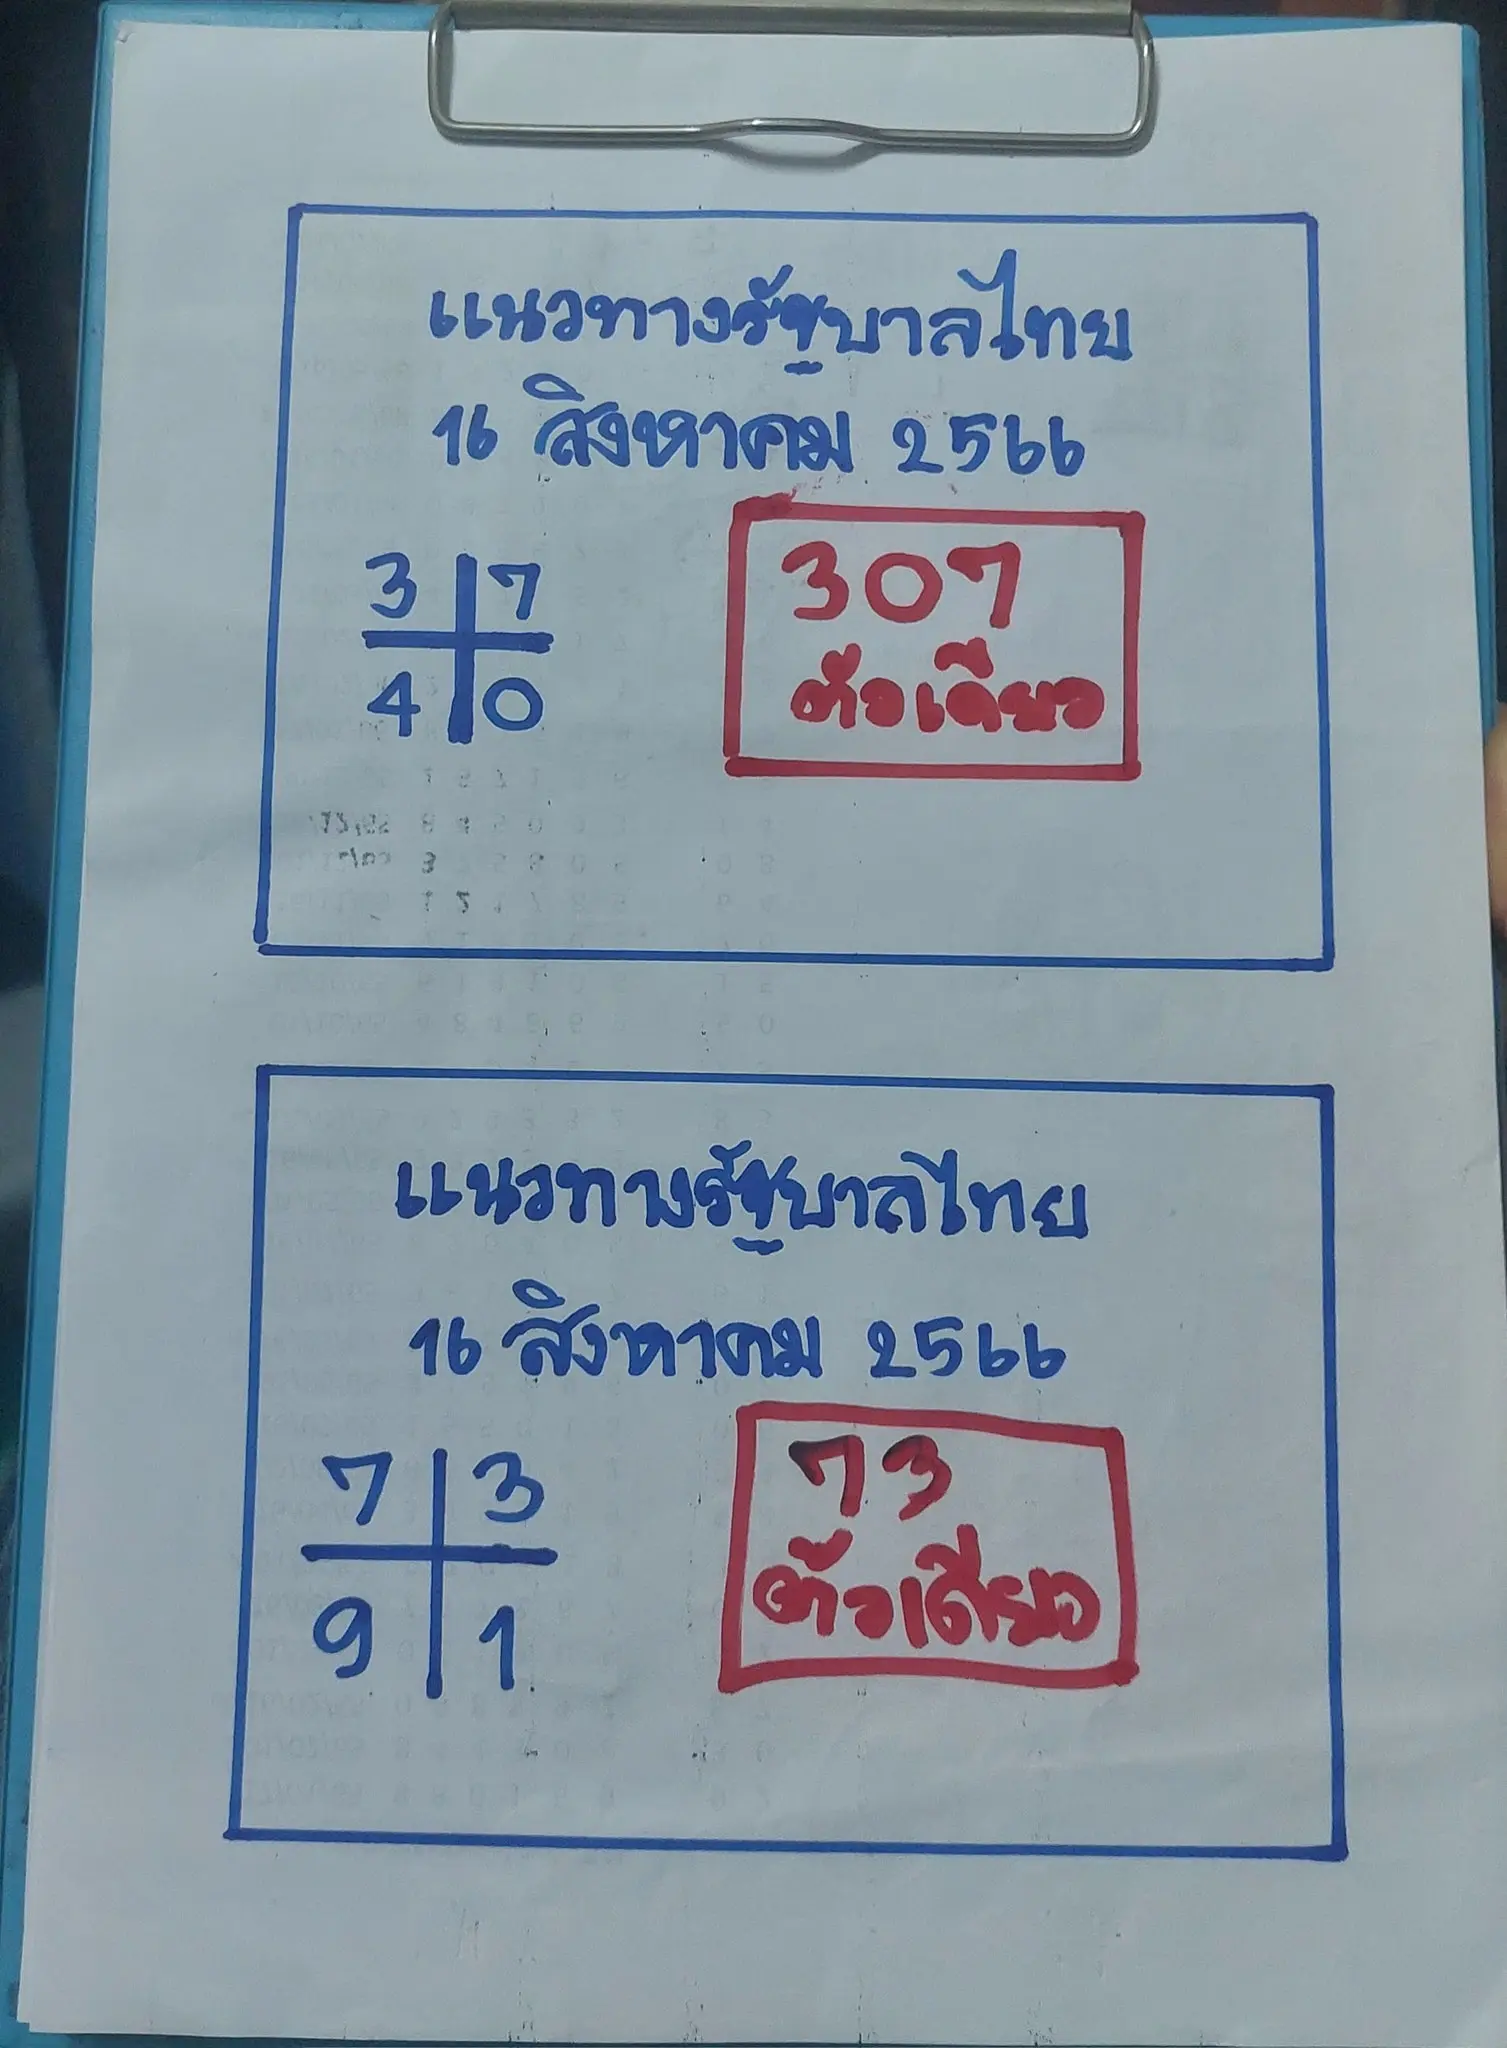 แนวทางรัฐบาลไทย
16 สิงหาคม 2566
3 7
4 0
307
ตัวเดียว
แนวทางรัฐบาลไทย
16 สิงหาคม 2566
7 3
9 1
73
ตัวเดียว